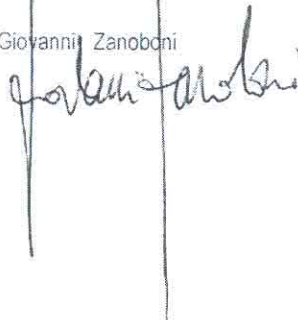 Giovanni Zanoboni
Giovanni Zanoboni